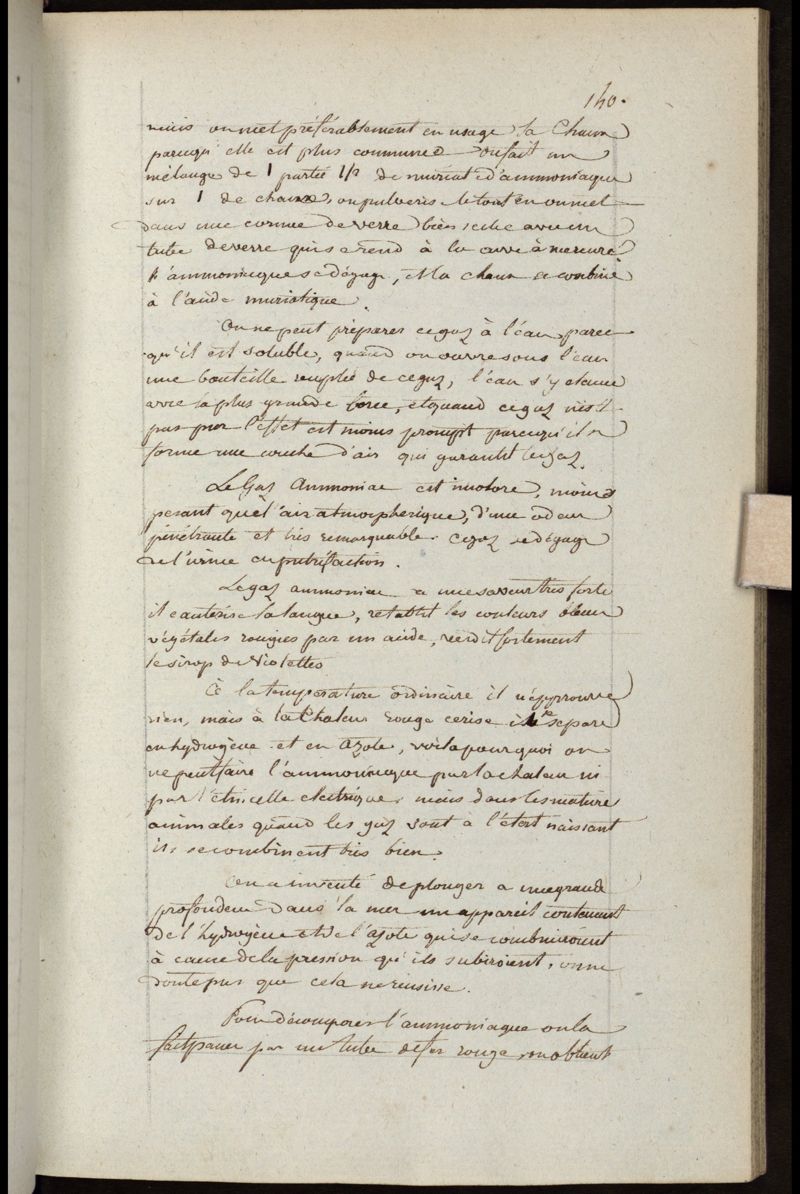 140.
mais on met préférablement en usage la Chaux
parcequ'elle est plus commune on fait un
mélange de 1 partie 1/2 de muriate d'ammoniaque
sur 1 de chaux, on pulverise le tout en on met
dans une cornue de verre bien seche avec un
tube de verre qui se rend à la cuve à mercure
l'ammoniaque se dégage, et la chaux se combine
à l'acide muriatique.
On ne peut préparer ce gaz à l'eau parce
qu'il est soluble, quand on ouvre sous l'eau
une bouteille remplie de ce gaz, l'eau s'y elance
avec la plus grande force, et quand ce gaz n'est
pas pur l'effet est moins prompt parcequ'il se
forme une couche d'air qui garantit le gaz.
Le Gaz Ammoniac est inodore, moins
pesant que l'air atmospherique, d'une odeur
pénétrante et très remarquable. ce gaz se dégage
de l'urine en putréfaction.
Le gaz ammoniac a une saveur très forte
il cautérise la langue, retablit les couleurs bleues
végétales rougies par un acide, verdit fortement
le sirop de Violettes
à la température ordinaire il n'éprouve
rien, mais à la Chaleur rouge cerise il se separe
en hydrogène et en azote, voila pourquoi on
ne peut faire l'ammoniaque par la chaleur ni
par l'étincelle electrique, mais dans les matières
animales quand les gaz sont a l'état naissant
ils se combinent très bien.
On a inventé de plonger a une grande
profondeur dans la mer un appareil contenant
de l'hydrogène et de l'azote qui se combineroient
à cause de la pression qu'ils subiroient, on ne
doute pas que cela ne reusisse.
Pour décomposer l'ammoniaque on la
fait passer par un tube de fer rouge, on obtient